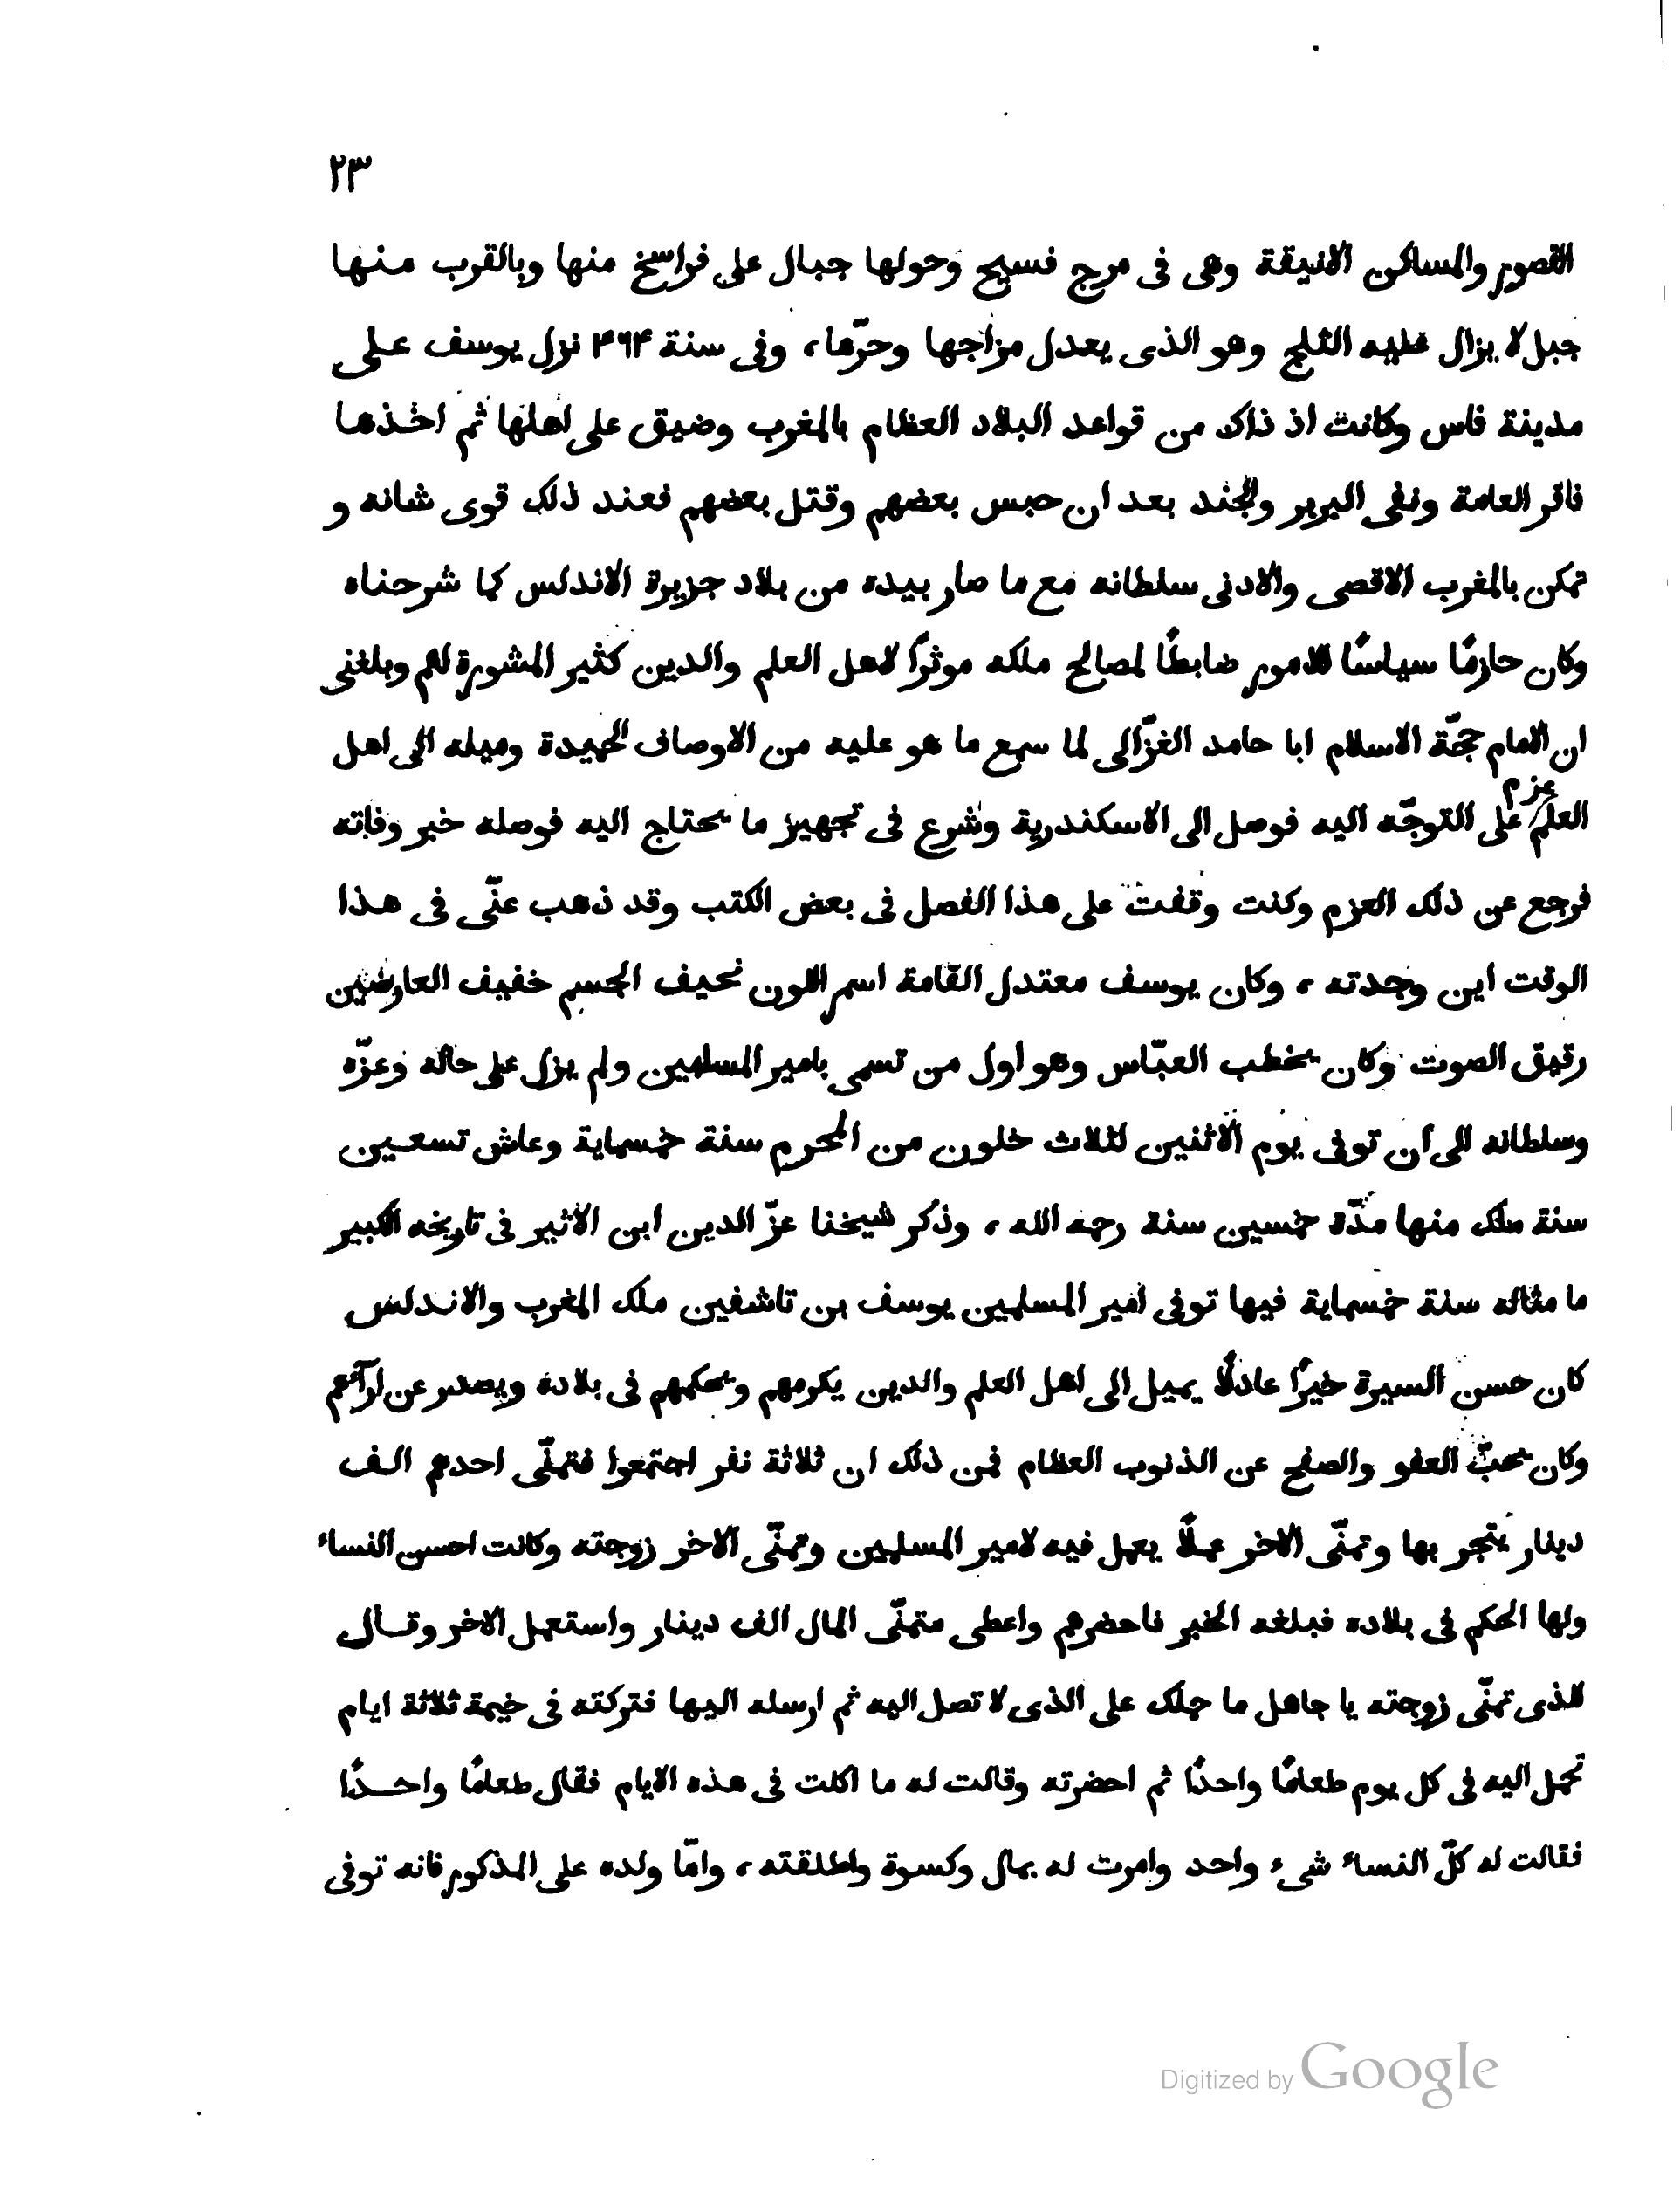 ٢٣
القصور والمساكن الانيقة وهى فى مرج فسيح وحولها جبال على فراسخ منها وبالقرب منها
جبل لا يزال عليه الثلج وهو الذى يعدل مزاجها وحرّها، وفى سنة ۴۶۴ نزل يوسف على
مدينة فاس وكانت اذ ذاك من قواعد البلاد العظام بالمغرب وضيق على اهلها ثم اخذها
فاقر العامة ونفى البربر والجند بعد ان حبس بعضهم وقتل بعضهم فعند ذلك قوى شانه و
تمكن بالمغرب الاقصى والادنى سلطانه مع ما صار بيده من بلاد جزيرة الاندلس كما شرحناه
وكان حازمًا سياسًا للامور ضابطًا لمصالح ملكه موثرًا لاهل العلم والدين كثير المشورة لهم وبلغنى
ان الامام حجّة الاسلام ابا حامد الغزّالى لما سمع ما هو عليه من الاوصاف الحميدة وميله الى اهل
العلم عزم على التوجّه اليه فوصل الى الاسكندرية وشرع فى تجهيز ما يحتاج اليه فوصله خبر وفاته
فرجع عن ذلك العزم وكنت وقفت على هذا الفصل فى بعض الكتب وقد ذهب عنّى فى هذا
الوقت اين وجدته، وكان يوسف معتدل القامة اسمر اللون نحيف الجسم خفيف العارضين
رقيق الصوت وكان يخطب العبّاس وهو اول من تسمى بامير المسلمين ولم يزل على حاله وعزّه
وسلطانه الى ان توفى يوم الاثنين لثلاث خلون من المحرم سنة خمسماية وعاش تسعين
سنة ملك منها مدّة خمسين سنة رحمه الله، وذكر شيخنا عزّ الدين ابن الاثير فى تاريخه الكبير
ما مثاله سنة خمسماية فيها توفى امير المسلمين يوسف بن تاشفين ملك المغرب والاندلس
كان حسن السيرة خيرًا عادلًا يميل الى اهل العلم والدين يكرمهم ويحكمهم فى بلاده ويصدر عن ارآئهم
وكان يحبّ العفو والصفح عن الذنوب العظام فمن ذلك ان ثلاثة نفر اجتمعوا فتمنّى احدهم الف
دينار يتجر بها وتمنّى الاخر عملًا يعمل فيه لامير المسلمين وتمنّى الاخر زوجته وكانت احسن النساء
ولها الحكم فى بلاده فبلغه الخبر فاحضرهم واعطى متمنّى المال الف دينار واستعمل الاخر وقال
للذى تمنّى زوجته يا جاهل ما حملك على الذى لا تصل اليه ثم ارسله اليها فتركته فى خيمة ثلاثة ايام
تحمل اليه فى كل يوم طعامًا واحدًا ثم احضرته وقالت له ما اكلت فى هذه الايام فقال طعامًا واحدًا
فقالت له كلّ النساء شىء واحد وامرت له بمال وكسوة واطلقته، وامّا ولده على المذكور فانه توفى
Digitized by Google